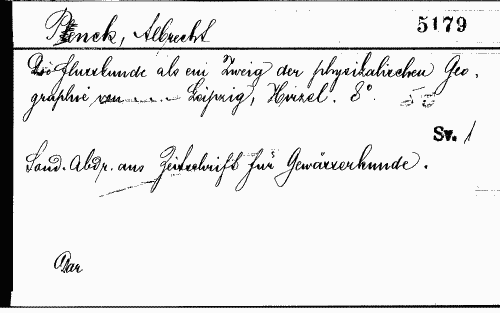 Penck, Albrecht
5179
Die Flusskunde als ein Zweig der physikalischen Geo-
graphie von ..... Leipzig, Hirzel. 8°.
Sv. 1
Sond. Abdr. aus Zeitschrift für Gewässerkunde.